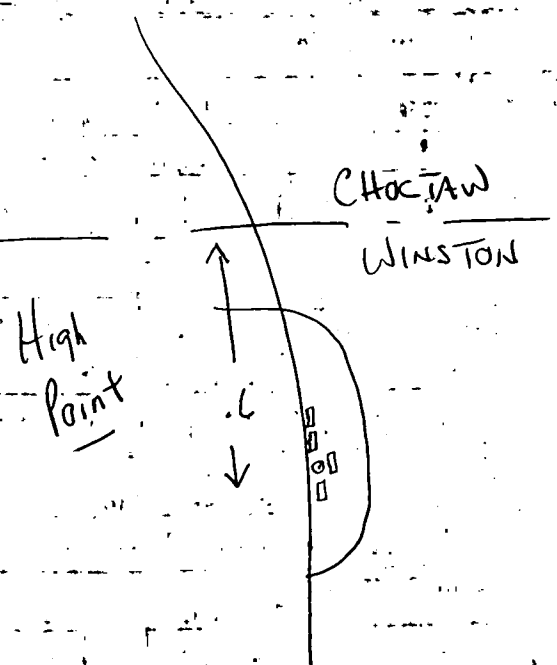 CHOCTAW
WINSTON
High
Point
.6